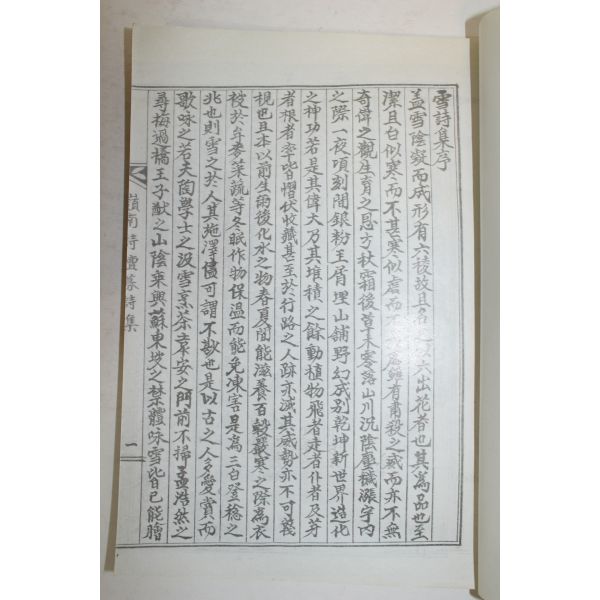 雪詩集序
盖雪陰凝而成形有六稜故且名之以六出花者也其為品也至
潔且白似寒而不甚寒似虐而不 有肅殺之威而亦不無
奇偉之觀生育之恩方杜霜後草木寒落山川沉陰塵穢漲宇內
之際一夜頃刻間銀粉玉屑埋山舖野幻成別乾坤新世界造化
之神功若是其偉大乃其堆積之餘動植物飛者走者仆者及芽
者根者率皆慴伏收藏甚至於行路之人跡亦滅其威勢亦不可蔑
視也且本以前生雨後化水之物春夏間能滋養百穀嚴寒之際為衣
被於牟麥菜蔬等冬眠作物保溫而能免凍害是為三白登稔之
兆也則雪之於人其施澤優可謂不尠也是以古之人多愛賞而
歌咏之若夫陶學士之汲雪烹茶袁安之門前不掃孟浩然之
尋梅過橋王子猷之山陰乘興蘇東坡之禁體咏雪皆已能膾
嶺南詩壇篆詩集
一